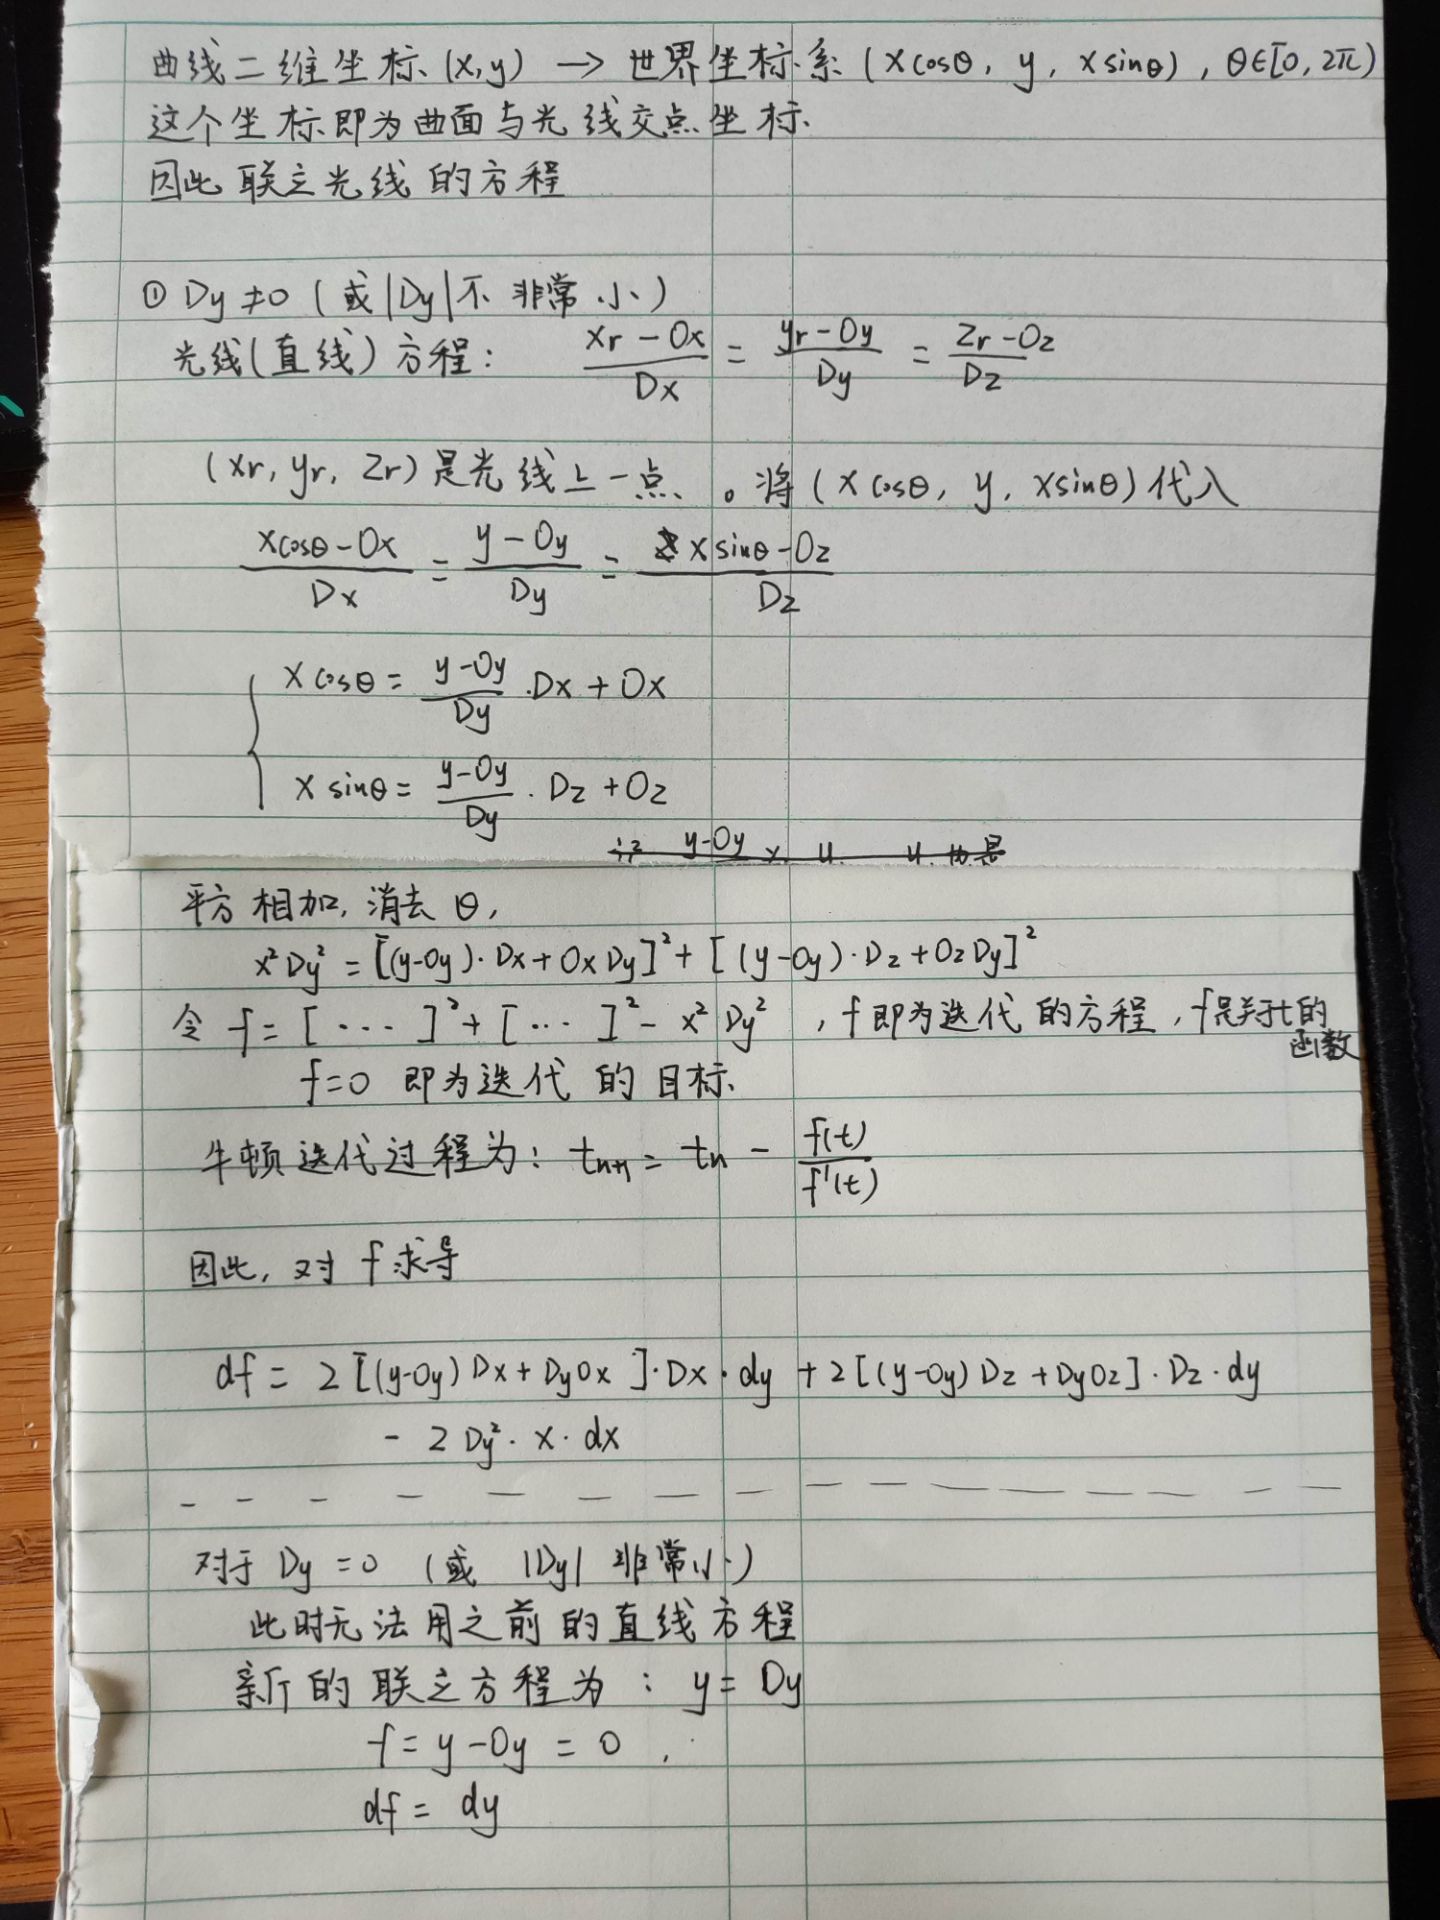 曲线二维坐标(x,y) → 世界坐标系(xcosθ, y, xsinθ), θ∈[0, 2π)
这个坐标即为曲面与光线交点坐标.
因此联立光线的方程
① Dy≠0 (或|Dy|不非常小)
光线(直线)方程: (xr-Ox)/Dx = (yr-Oy)/Dy = (zr-Oz)/Dz
(xr, yr, zr)是光线上一点。将(xcosθ, y, xsinθ)代入
(xcosθ-Ox)/Dx = (y-Oy)/Dy = (xsinθ-Oz)/Dz
{ xcosθ = (y-Oy)/Dy · Dx + Ox
xsinθ = (y-Oy)/Dy · Dz + Oz
平方相加, 消去θ,
x²Dy² = [(y-Oy)·Dx+OxDy]² + [(y-Oy)·Dz+OzDy]²
令 f = [ ··· ]² + [ ··· ]² - x²Dy² , f即为迭代的方程, f是关于t的函数
f=0 即为迭代的目标.
牛顿迭代过程为: tn+1 = tn - f(t)/f'(t)
因此, 对f求导
df = 2[(y-Oy)Dx+DyOx]·Dx·dy + 2[(y-Oy)Dz+DyOz]·Dz·dy
- 2Dy²·x·dx
对于Dy=0 (或 |Dy| 非常小)
此时无法用之前的直线方程
新的联立方程为: y=Dy
f = y-Oy = 0 ,
df = dy